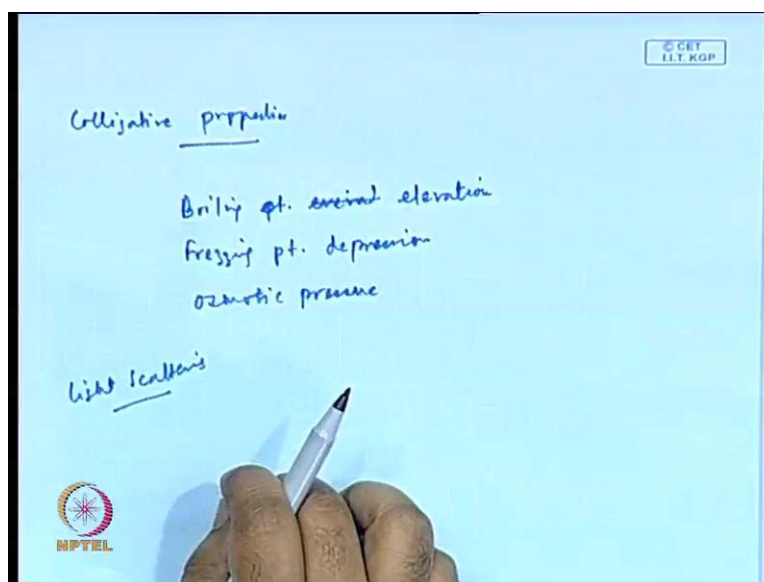 © CET
I.I.T. KGP
Colligative properties
Boiling pt. elevation
Freezing pt. depression
Ozmotic pressure
Light Scattering
NPTEL